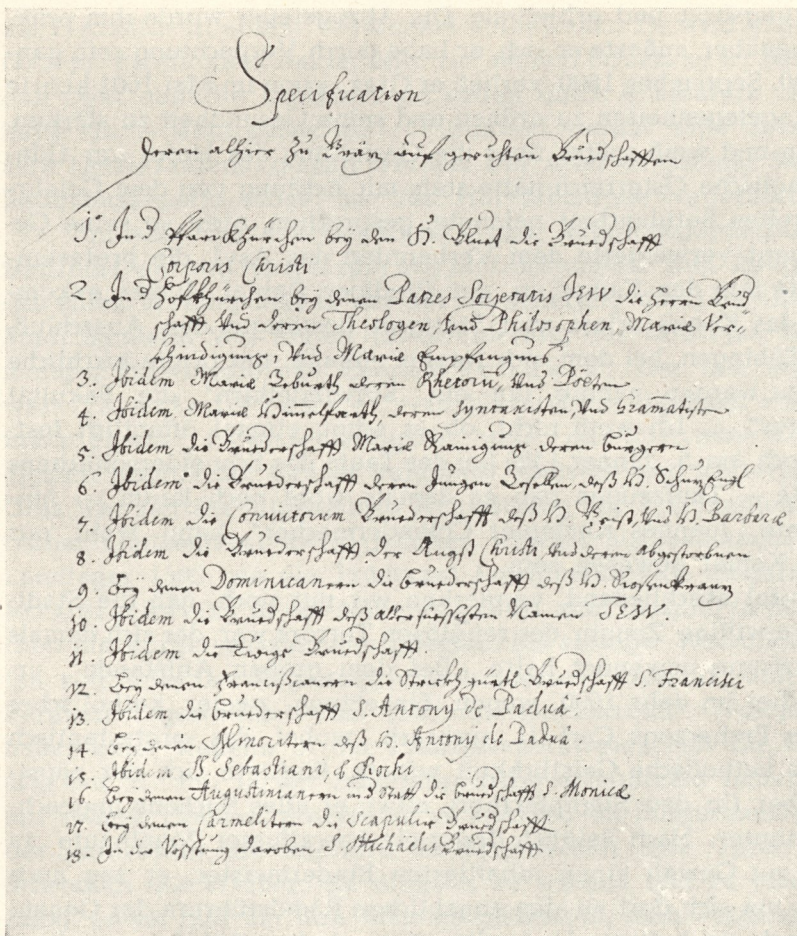 Specification
deren alhier zu Gräz auf gerichten Bruedschafften
1. In d Pfarrkhürchen bey den H. Bluet die Bruedschafft
Corporis Christi
2. In d Hofkhürchen bey denen Patres Socjetatis JESV die Herrn Brued
schafft, Vnd deren Theologen, Vnd Philosophen, Mariæ Ver-
khindigung, Vnd Mariæ Empfengnus.
3. Ibidem Mariæ Geburth deren Rhetorn, Vnd Pöeten
4. Ibidem Mariæ Himmelfarth, deren Syntaxisten, Vnd Grammatisten
5. Ibidem die Bruederschafft Mariæ Rainigung deren burgern
6. Ibidem die Bruederschafft deren Jungen Gesellen, deß H. SchuzEngl
7. Ibidem die Convictorum Bruederschafft deß H. Geist, Vnd H. Barbaræ
8. Ibidem die Bruederschafft der Angst Christi, Vnd deren abgestorbnen
9. bey denen Dominicanern die bruederschafft deß H. Rosenkranz
10. Ibidem die Bruedschafft deß aller süessisten Namen JESV.
11. Ibidem die Ewige Bruedschafft.
12. bey denen Franciscanern die Strickh gürtl Bruedschafft S. Francisci
13. Ibidem die bruederschafft S. Antony de Padua.
14. bey denen Minoritern deß H. Antony de Padua.
15. Ibidem S. Sebastiani, & Rochi
16. bey denen Augustinianern in d Statt die bruedschafft S. Monicæ
17. bey denen Carmelitern die Scapulir Bruedschafft
18. In der Vösstung daroben S. Michaelis Bruedschafft.